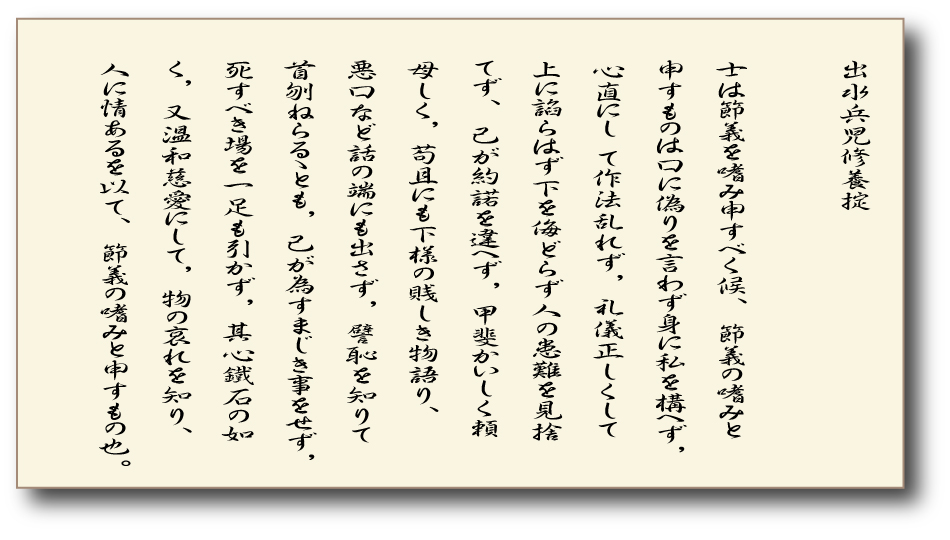 出水兵児修養掟
士は節義を嗜み申すべく候、節義の嗜みと
申すものは口に偽りを言わず身に私を構へず，
心直にして作法乱れず，礼儀正しくして
上に諂らはず下を侮どらず人の患難を見捨
てず、己が約諾を違へず，甲斐かいしく頼
母しく，苟且にも下様の賎しき物語り、
悪口など話の端にも出さず，譬恥を知りて
首刎ねらるゝとも，己が為すまじき事をせず，
死すべき場を一足も引かず，其心鐵石の如
く，又温和慈愛にして，物の哀れを知り、
人に情あるを以て、節義の嗜みと申すもの也。